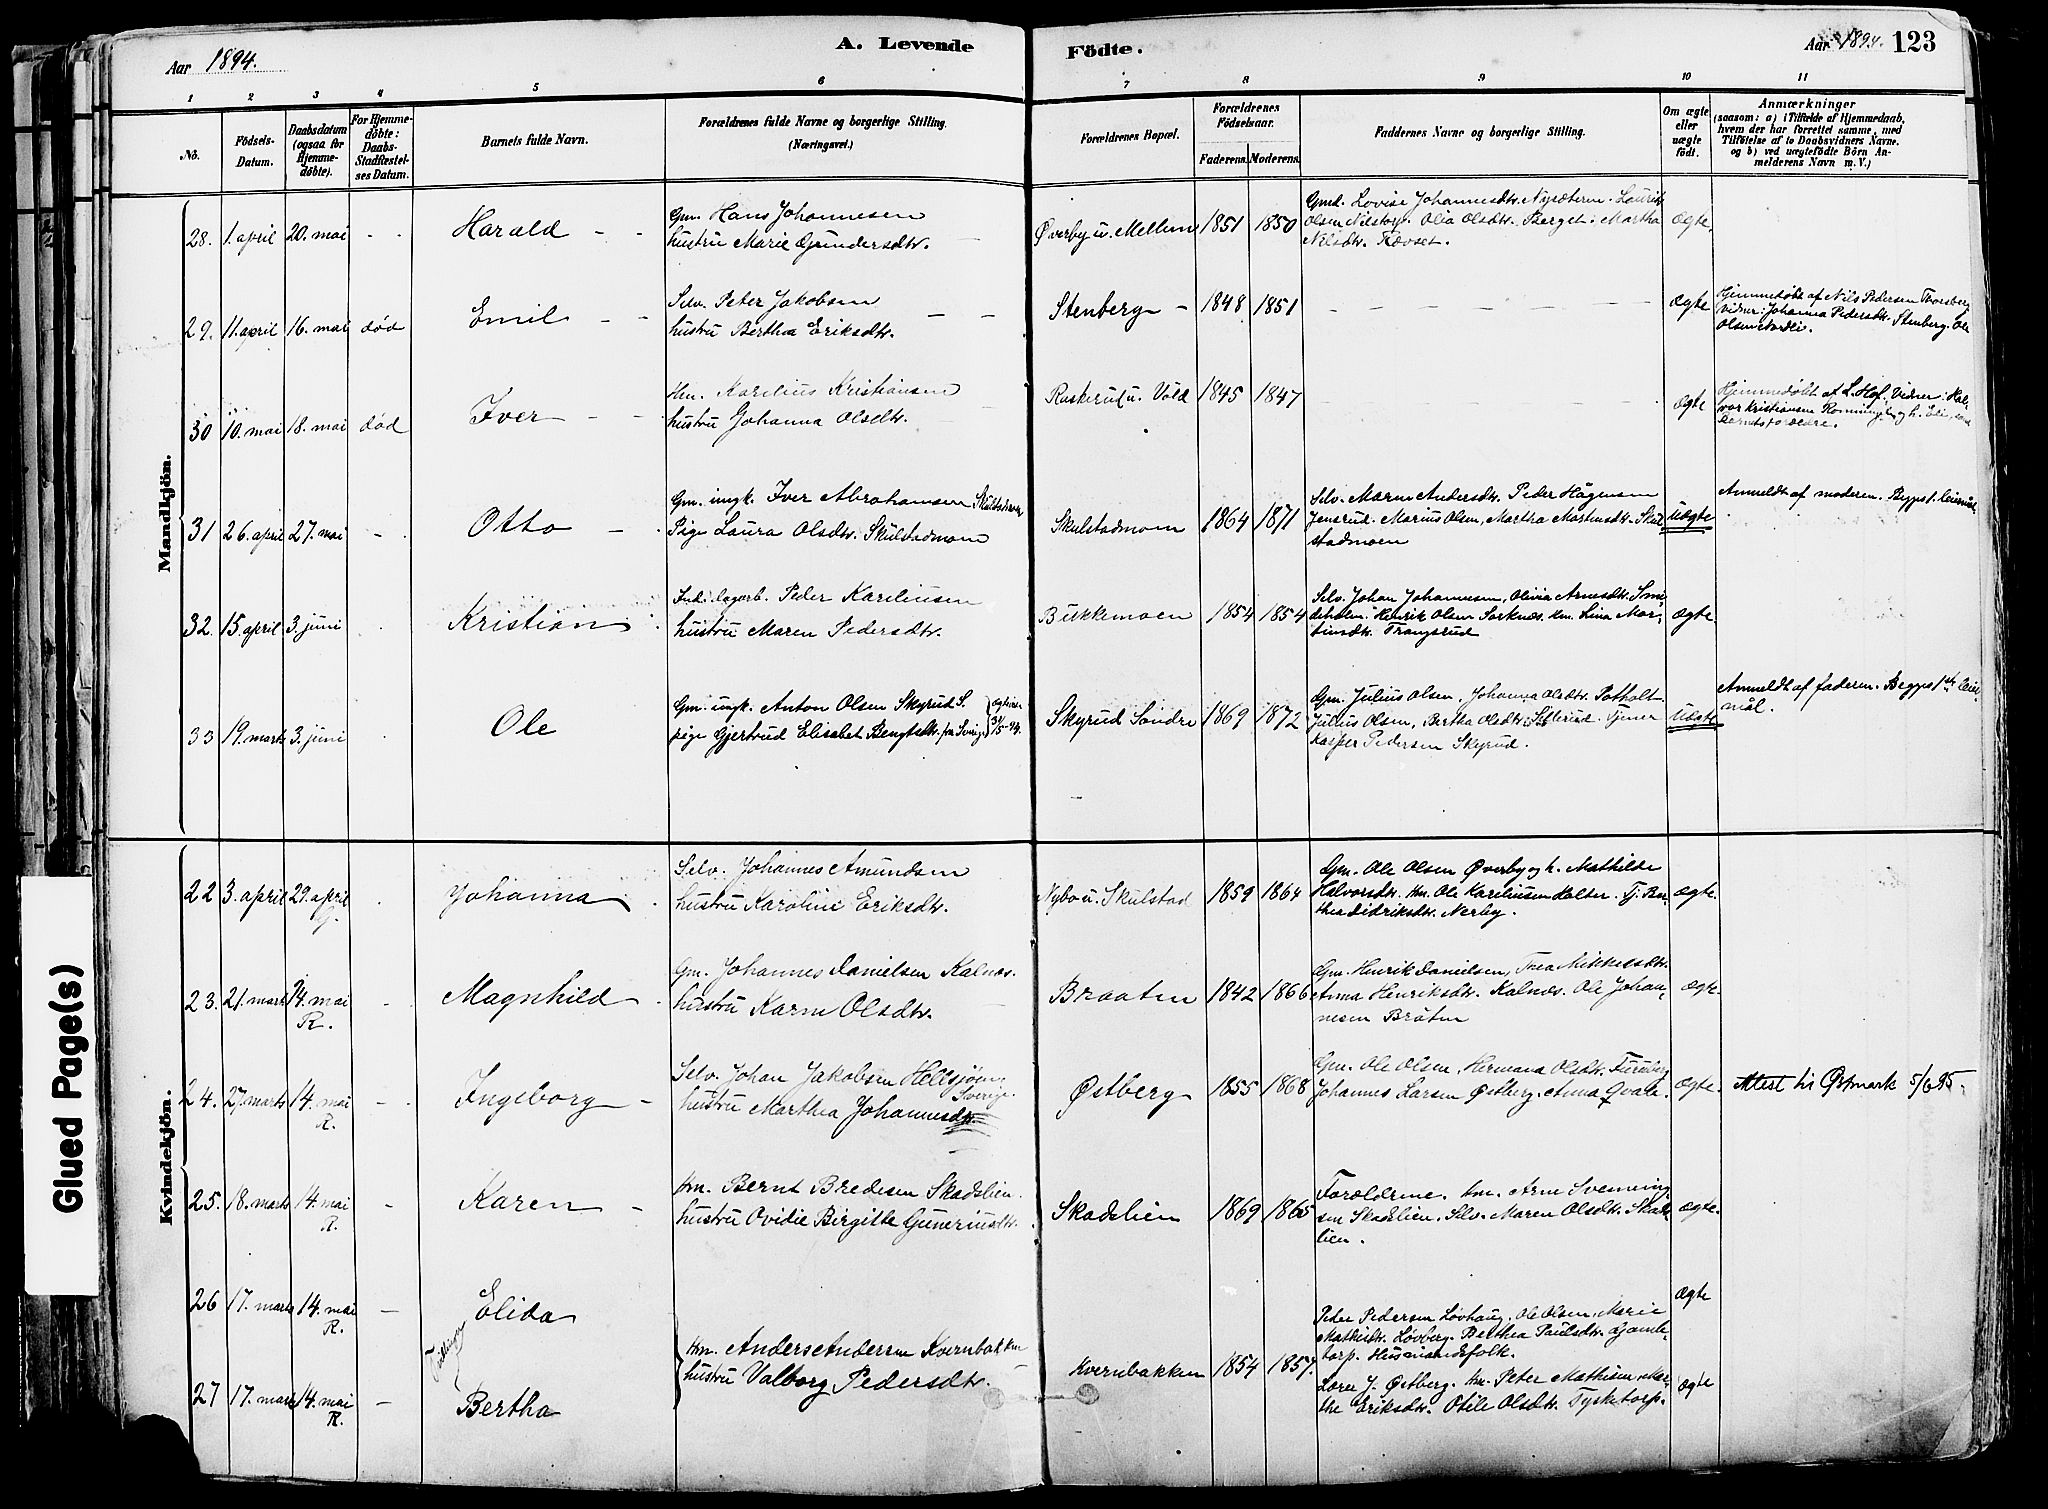 Aar 1894.
A. Levende
Födte.
Aar 1894.
123
1 2 3 4 5 6 7 8 9 10 11
No.
Födsels-
Datum.
Daabsdatum
(ogsaa for
Hjemme-
døbte).
For Hjemme-
døbte:
Daabs-
Stadfæstel-
ses Datum.
Barnets fulde Navn.
Forældrenes fulde Navne og borgerlige Stilling.
(Næringsvei.)
Forældrenes Bopæl.
Forældrenes
Födselsaar.
Faderens. Moderens.
Faddernes Navne og borgerlige Stilling.
Om ægte
eller
uægte
födt.
Anmærkninger
(saasom: a) i Tilfælde af Hjemmedaab,
hvem der har forrettet samme, med
Tilföielse af to Daabsvidners Navne.
og b) ved uægtefödte Börn An-
melderens Navn m. V.)
Mandkjön.
28. 1. april 20. mai - - Harald - -
Gm. Hans Johannesen
hustru Marie Gundersdtr. -
Øverby u. Mellem 1851 1850
Gmd. Lovise Johannesdtr. Nysæteren. Laurits
Olsen Nilstorp. Olia Olsdtr. Berget. Martha
Nilsdtr. Tævset.
ægte.
29. 11. april 16. mai død Emil - -
Selv. Peter Jakobsen
hustru Berthea Eriksdtr.
Stenberg - 1848 1851
ægte
Hjemmedøbt af Nils Pedersen Torsberg
Vidner: Johanna Pedersdtr. Stenberg. Ole
Olsen
30 10. mai 18. mai død Iver - -
Hm. Karelius Kristiansen
hustru Johanna Olsdtr.
Raskerud u. Vold 1845 1847
ægte
Hjemmedøbt af L. Hof. Vidner: Hal-
vor Kristiansen
Barnets forældre.
31 26. april 27. mai - Otto -
Gm. ungk. Iver Abrahamsen Skulstadmoen
Pige Laura Olsdtr. Skulstadmoen
Skulstadmoen 1864 1871
Selv. Maren Andersdtr. Peder Hågensen
Jensrud. Marius Olsen, Martha Mortensdtr. Skul
stadmoen
Uægte
Anmeldt af moderen. Begges 1. leiermål
32. 15. april 3. juni - Kristian
Ind. dagarb. Peder Kareliusen
hustru Maren Pedersdtr.
Bukkemoen 1854 1854
Selv. Johan Johannesen, Olivia Arnesdtr. Sme-
deholen. Henrik Olsen Sorknæs. Hm. Lina Mar-
tinsdtr. Trangsrud
ægte
33 19. marts 3. juni Ole
Gm. ungk. Anton Olsen Skyrud S.
pige Gjertrud Elisabet Bengtsdtr. fra Sverige
Skyrud Søndre 1869 1872
Gm. Julius Olsen, Johanna Olsdtr. Potholt-
Julius Olsen, Bertha Olsdtr. Sätterud. Tjener
Kasper Pedersen Skyrud.
Uægte
Anmeldt af faderen. Begges 1ste leier
mål.
Kvindekjön.
22 3. april 29. april Johanna
G.
Selv. Johannes Amundsen
hustru Karoline Eriksdtr.
Nybo u. Skulstad 1859 1864
Gm. Ole Olsen Øverby og h. Mathilde
Halvorsdtr. Hm. Ole Kareliusen Kalter. Tj. Ber-
thea Didriksdtr. Nerby.
ægte.
23. 21. marts 14. mai - Magnhild -
R.
Gm. Johannes Danielsen Kalnæs.
hustru Karen Olsdtr.
Braaten 1842 1866
Gm. Henrik Danielsen, Thea Mikkelsdtr.
Anna Henriksdtr. Kalnæs. Ole Johan-
nesen Bråten
ægte.
24. 27. marts 14. mai - Ingeborg -
R.
Selv. Johan Jakobsen Hellsjøen
Sverige.
hustru Marthea Johannesdtr.
Østberg 1855 1868
Gm. Ole Olsen, Hermana Olsdtr. Furuberg
Johannes Larsen Østberg. Anna Qvale.
ægte
Attest til Østmark 5/6 95.
25. 18. marts 14. mai - Karen -
R.
Hm. Bernt Bredesen Skadslien.
hustru Ovidie Birgitte Gunneriusdtr.
Skadslien 1869 1865
Forældrene. Hm. Arne Svenning-
sen Skadslien. Selv. Maren Olsdtr. Skads-
lien.
ægte.
26 17. marts 14. mai - Elida
R.
ægte
Tvillinger
Hm. Anders Andersen Kvernbakken
hustru Valborg Pedersdtr.
Kvernbakken 1854 1857.
Peter Pedersen Løvhaug, Ole Olsen, Marie
Mathisdtr. Løvberg. Berthea Paulsdtr. Gamle-
torp. Husmandsfolk.
27 17. marts 14. mai - Bertha
R.
Lærer J. Østberg. Hm. Peter Mathisen, Mar-
the Eriksdtr. Otile Olsdtr. Tysketorp.
ægte
Glued Page(s)